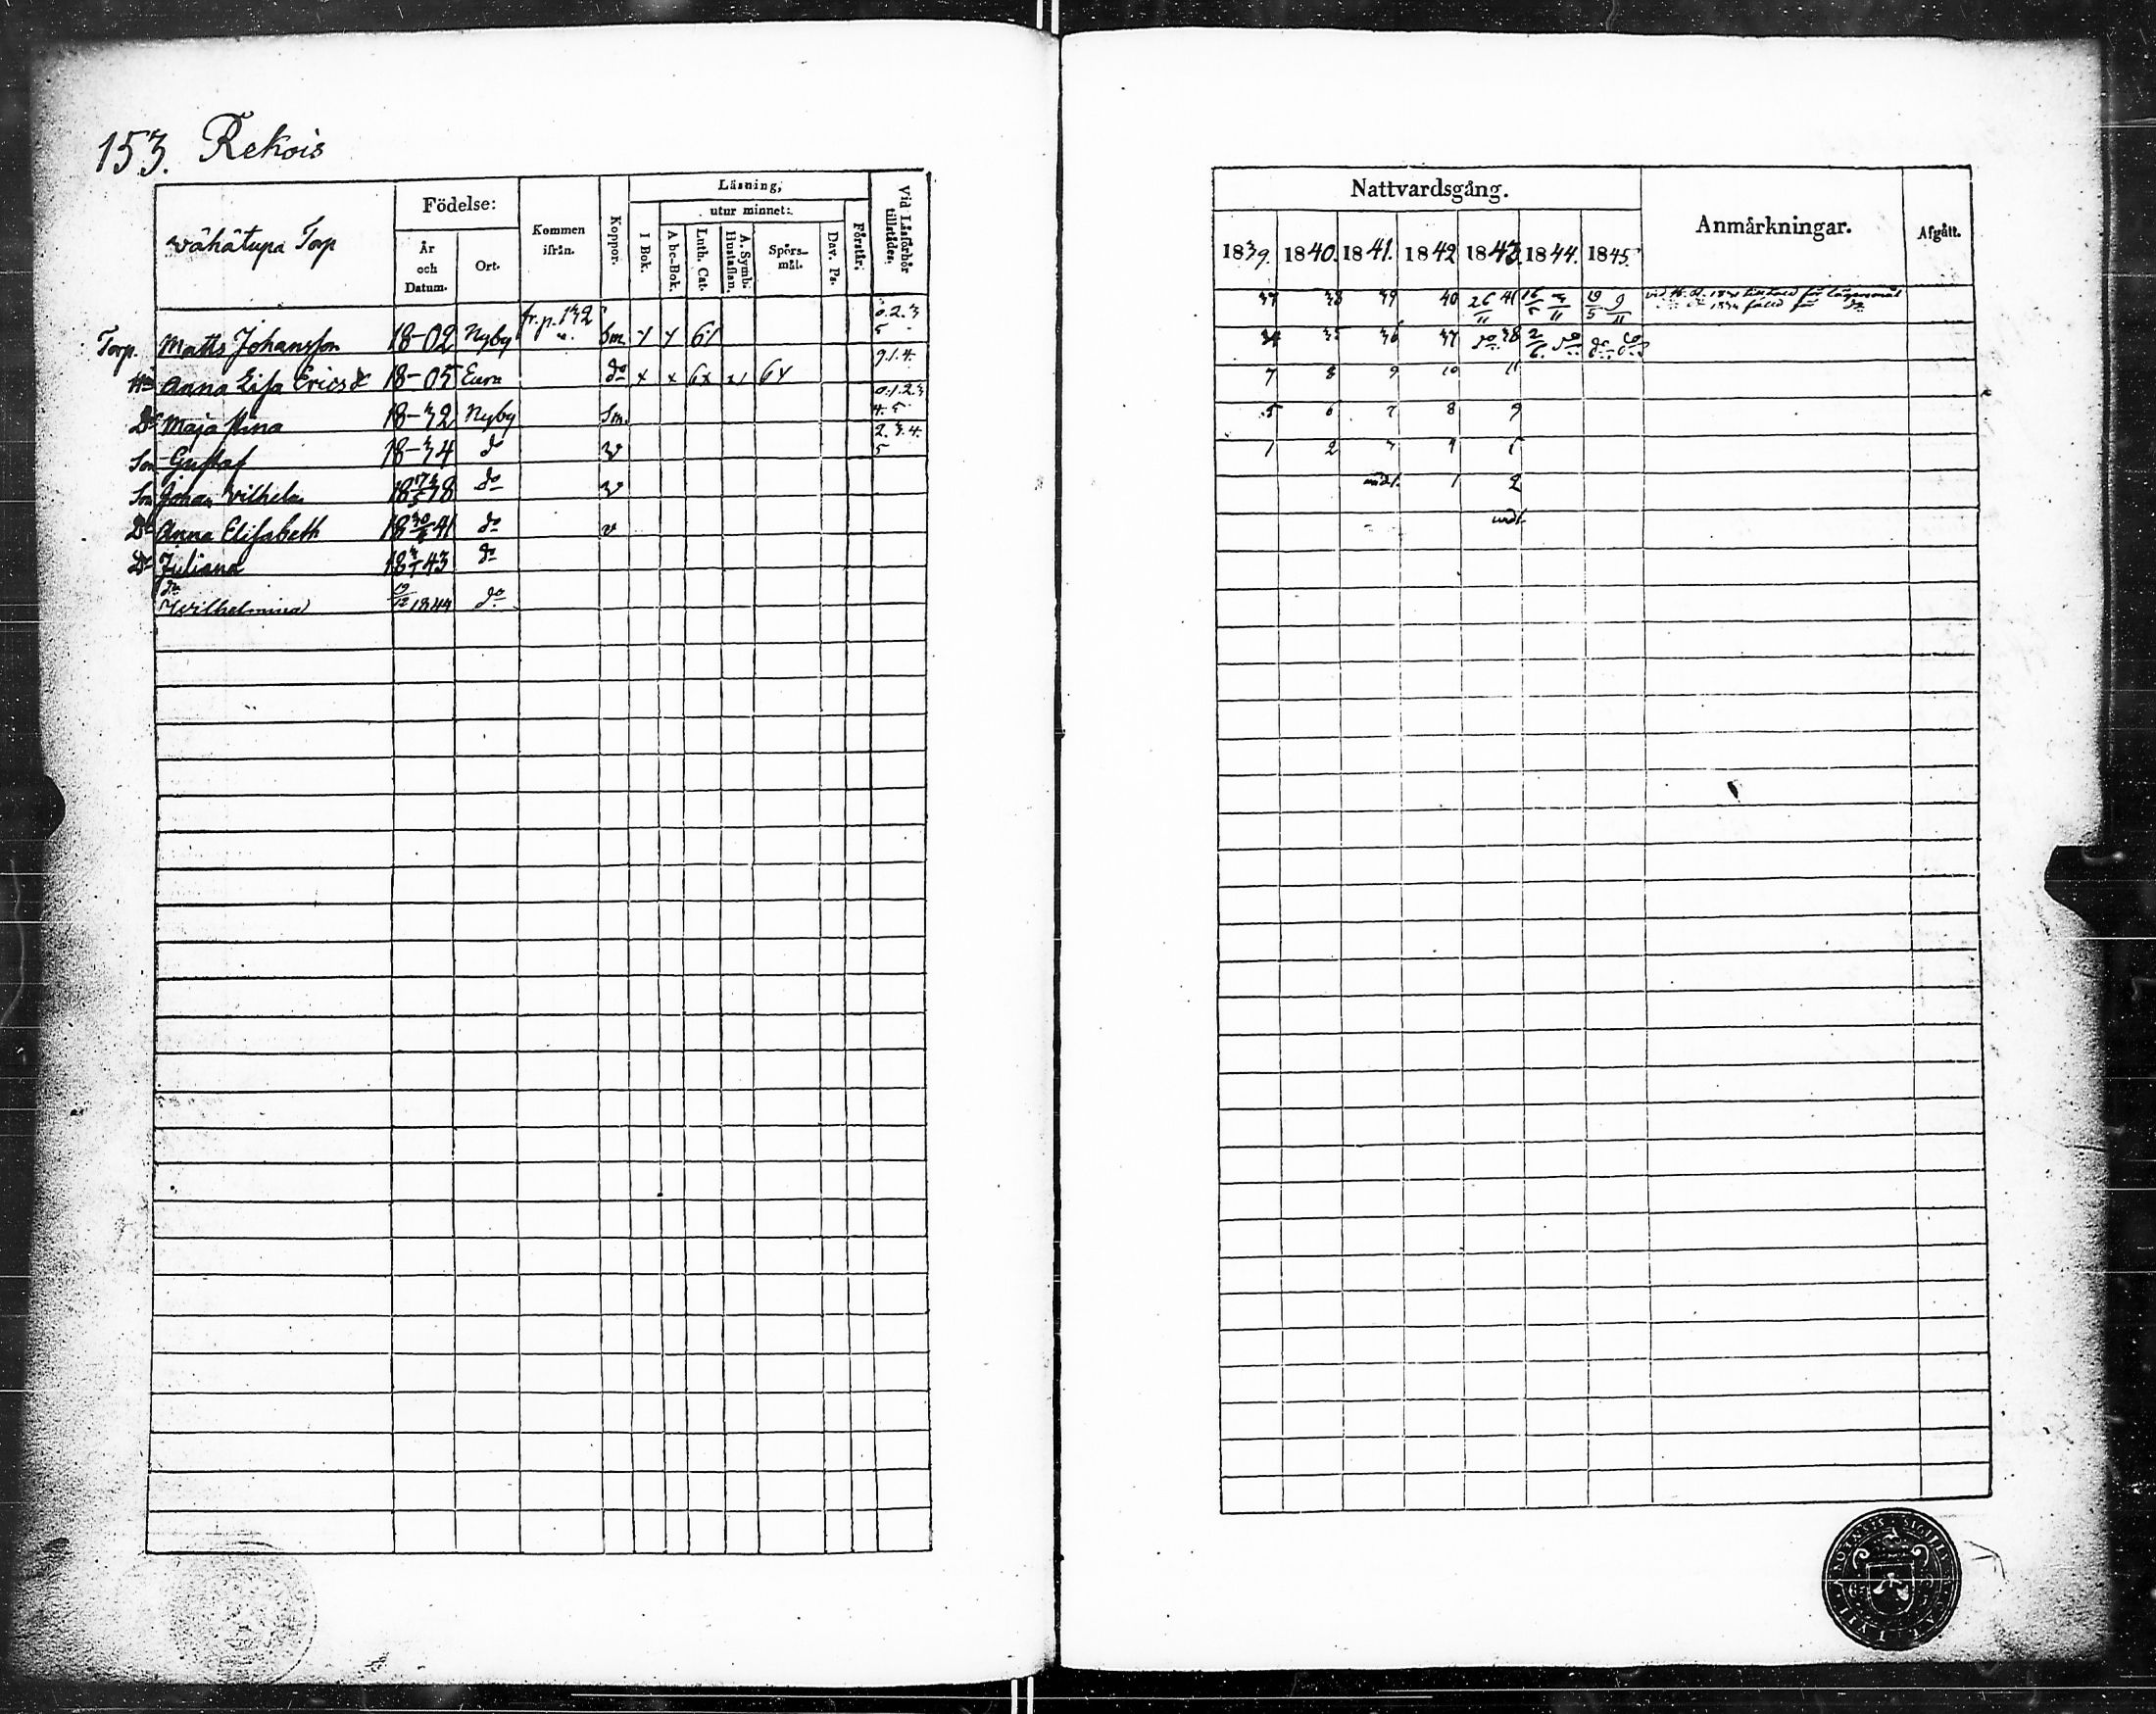 153. Rekois
wähätupa Torp
Födelse:
År och Datum.
Ort.
Kommen ifrån.
Koppor.
Läsning,
I Bok.
utur minnet:
Abc-Bok.
Luth. Cat.
A. Symb. Hustaflan.
Spörs-mål.
Dav. Ps.
Förstår.
Vid Läsförhör tillstädes.
Torp. Matts Johansson 18-02 Nyby fr. p. 132 Sm. 0.2.3 5
Anna Lisa Ericsd 18-05 Eura do x x 6x 6x 9.1.4.
Dr Maja Stina 18-32 Nyby Sm. 0.1.2.3 4.5
Son Gustaf 18-34 do v 2.3.4. 5
Son Johan Wilhelm 18 38 do v
Dr Anna Elisabeth 18 41 do v
Dr Juliana 18 43 do
do Wilhelmina 1844 do
Nattvardsgång.
Anmärkningar.
Afgått.
1839. 1840. 1841. 1842 1843. 1844. 1845.
37 38 39 40 26/11 41 19/5 9/11
34 35 36 37 do 38 2/6 do do do
7 8 9 10 11
5 6 7 8 9
1 2 3 4 5
undt. 1 2
undt.